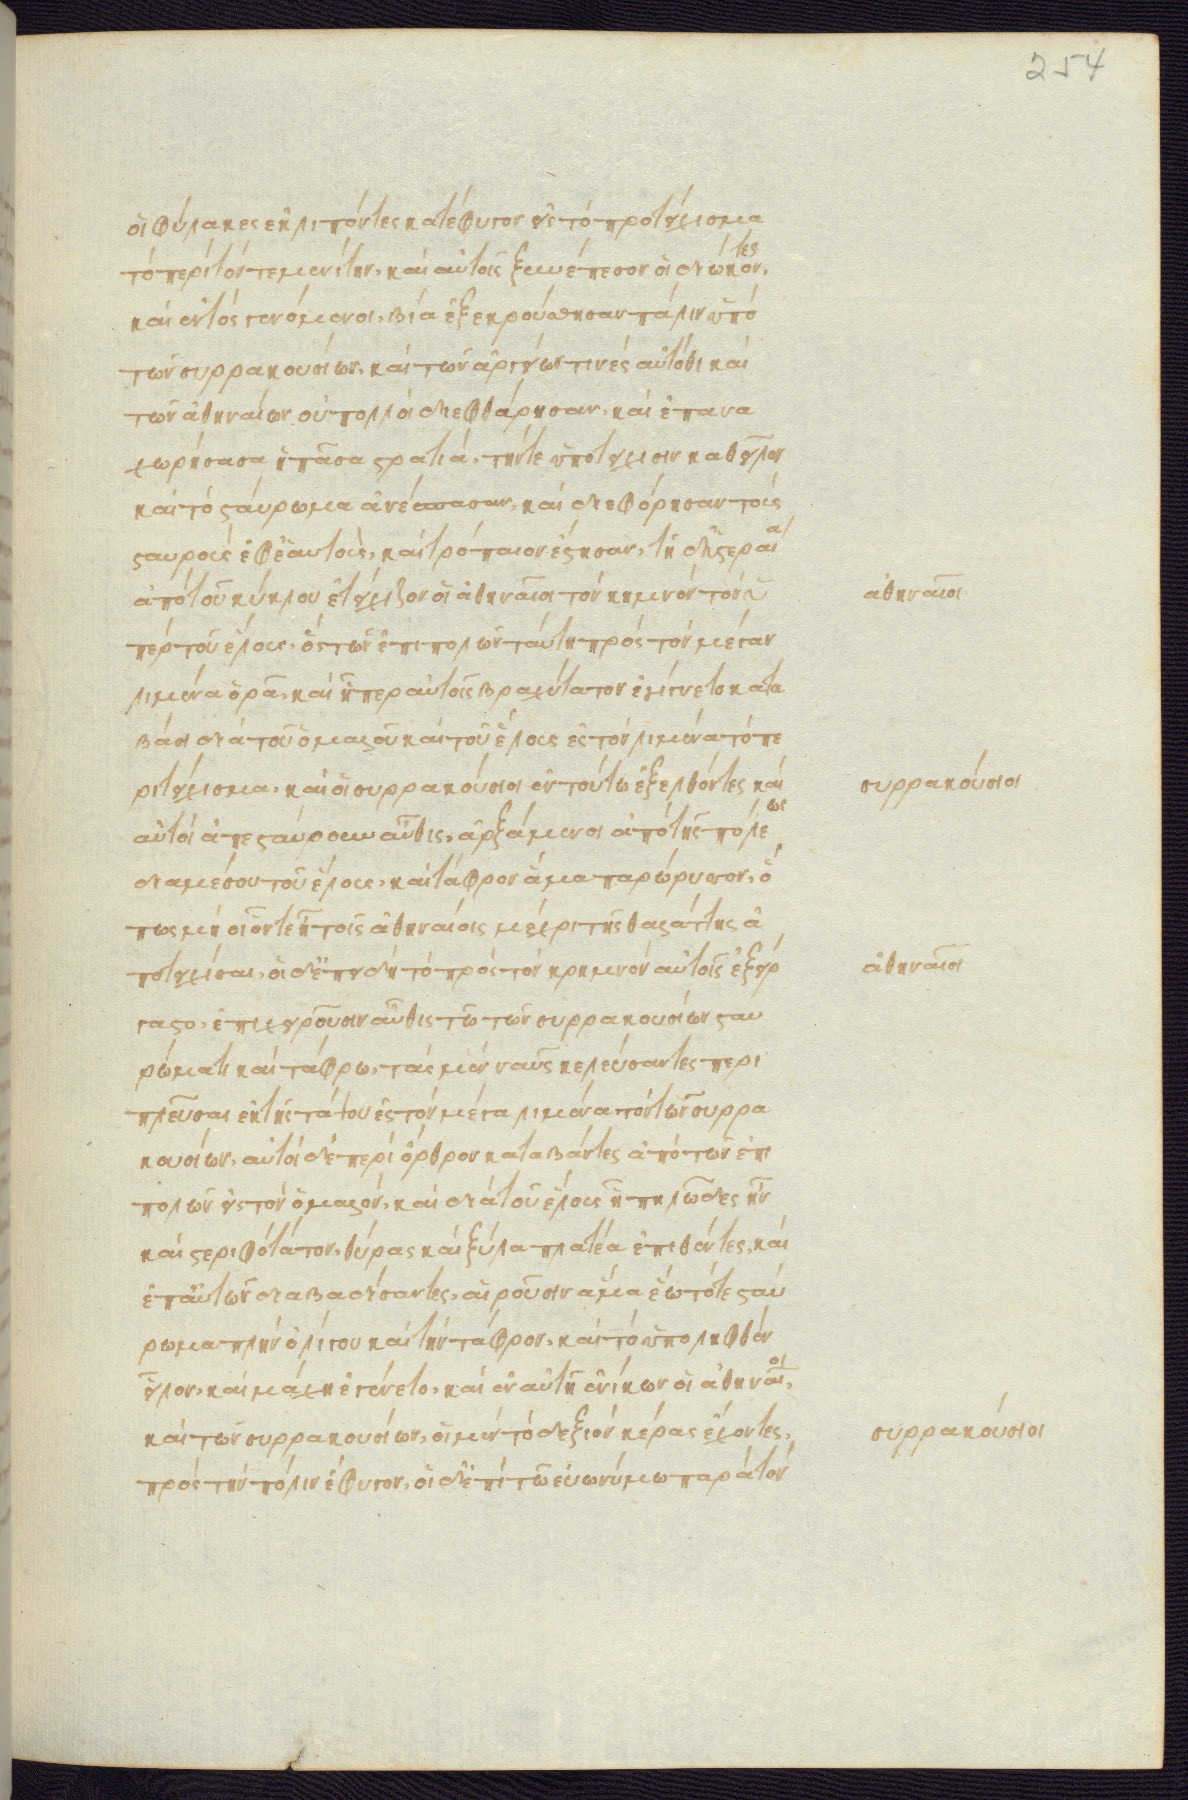 254
οἱ φύλακες ἐκλιπόντες κατέφυγον εἰς τὸ προτείχισμα
τὸ περὶ τὸν τεμενίτην, καὶ αὐτοῖς ξυνέπεσον οἱ διώκοντες,
καὶ ἐντὸς γενόμενοι, βίᾳ ἐξεκρούσθησαν πάλιν ὑπὸ
τῶν συρρακουσίων, καὶ τῶν ἀργείων τινὲς αὐτόθι καὶ
τῶν ἀθηναίων οὐ πολλοὶ διεφθάρησαν, καὶ ἐπανα
χωρήσασα ἡ πᾶσα στρατιὰ, τήντε ὑποτείχισιν καθεῖλον
καὶ τὸ σταύρωμα ἀνέσπασαν, καὶ διεφόρησαν τοὺς
σταυροὺς ἐφ' ἑαυτοὺς, καὶ τρόπαιον ἔστησαν, τῇ δ' ὑστεραίᾳ
ἀπὸ τοῦ κύκλου ἐτείχιζον οἱ ἀθηναῖοι τὸν κρημνὸν τὸν ὑ
ἀθηναῖοι
πὲρ τοῦ ἕλους, ὃς τῶν ἐπιπολῶν ταύτῃ πρὸς τὸν μέγαν
λιμένα ὁρᾷ, καὶ ᾗπερ αὐτοῖς βραχύτατον ἐγίγνετο κατα
βᾶσι διὰ τοῦ ὁμαλοῦ καὶ τοῦ ἕλους ἐς τὸν λιμένα τὸ πε
ριτείχισμα, καὶ οἱ συρρακούσιοι ἐν τούτῳ ἐξελθόντες καὶ
συρρακούσιοι
αὐτοὶ ἀπεσταύρουν αὖθις, ἀρξάμενοι ἀπὸ τῆς πόλεως
διαμέσου τοῦ ἕλους, καὶ τάφρον ἅμα παρώρυσσον, ὅ
πως μὴ οἷόντε ᾖ τοῖς ἀθηναίοις μέχρι τῆς θαλάττης ἀ
ποτειχίσαι, οἱ δ' ἐπειδὴ τὸ πρὸς τὸν κρημνὸν αὐτοῖς ἐξείρ
ἀθηναῖοι
γαστο, ἐπιχειροῦσιν αὖθις τῷ τῶν συρρακουσίων σταυ
ρώματι καὶ τάφρῳ, τὰς μὲν ναῦς κελεύσαντες περι
πλεῦσαι ἐκ τῆς τάψου ἐς τὸν μέγα λιμένα τὸν τῶν συρρα
κουσίων, αὐτοὶ δὲ περὶ ὄρθρον καταβάντες ἀπὸ τῶν ἐπι
πολῶν εἰς τὸν ὁμαλὸν, καὶ διὰ τοῦ ἕλους ᾗ πηλῶδες ἦν
καὶ στεριφότατον, θύρας καὶ ξύλα πλατέα ἐπιθέντες, καὶ
ἐπ' αὐτῶν διαβαδίσαντες, αἱροῦσιν ἅμα ἕῳ τότε σταύ
ρωμα πλὴν ὀλίγου καὶ τὴν τάφρον, καὶ τὸ ὑπολειφθὲν
εἷλον, καὶ μάχη ἐγένετο, καὶ ἐν αὐτῇ ἐνίκων οἱ ἀθηναῖοι,
καὶ τῶν συρρακουσίων, οἱ μὲν τὸ δεξιὸν κέρας ἔχοντες,
συρρακούσιοι
πρὸς τὴν πόλιν ἔφυγον, οἱ δ' ἐπὶ τῷ εὐωνύμῳ παρὰ τὸν